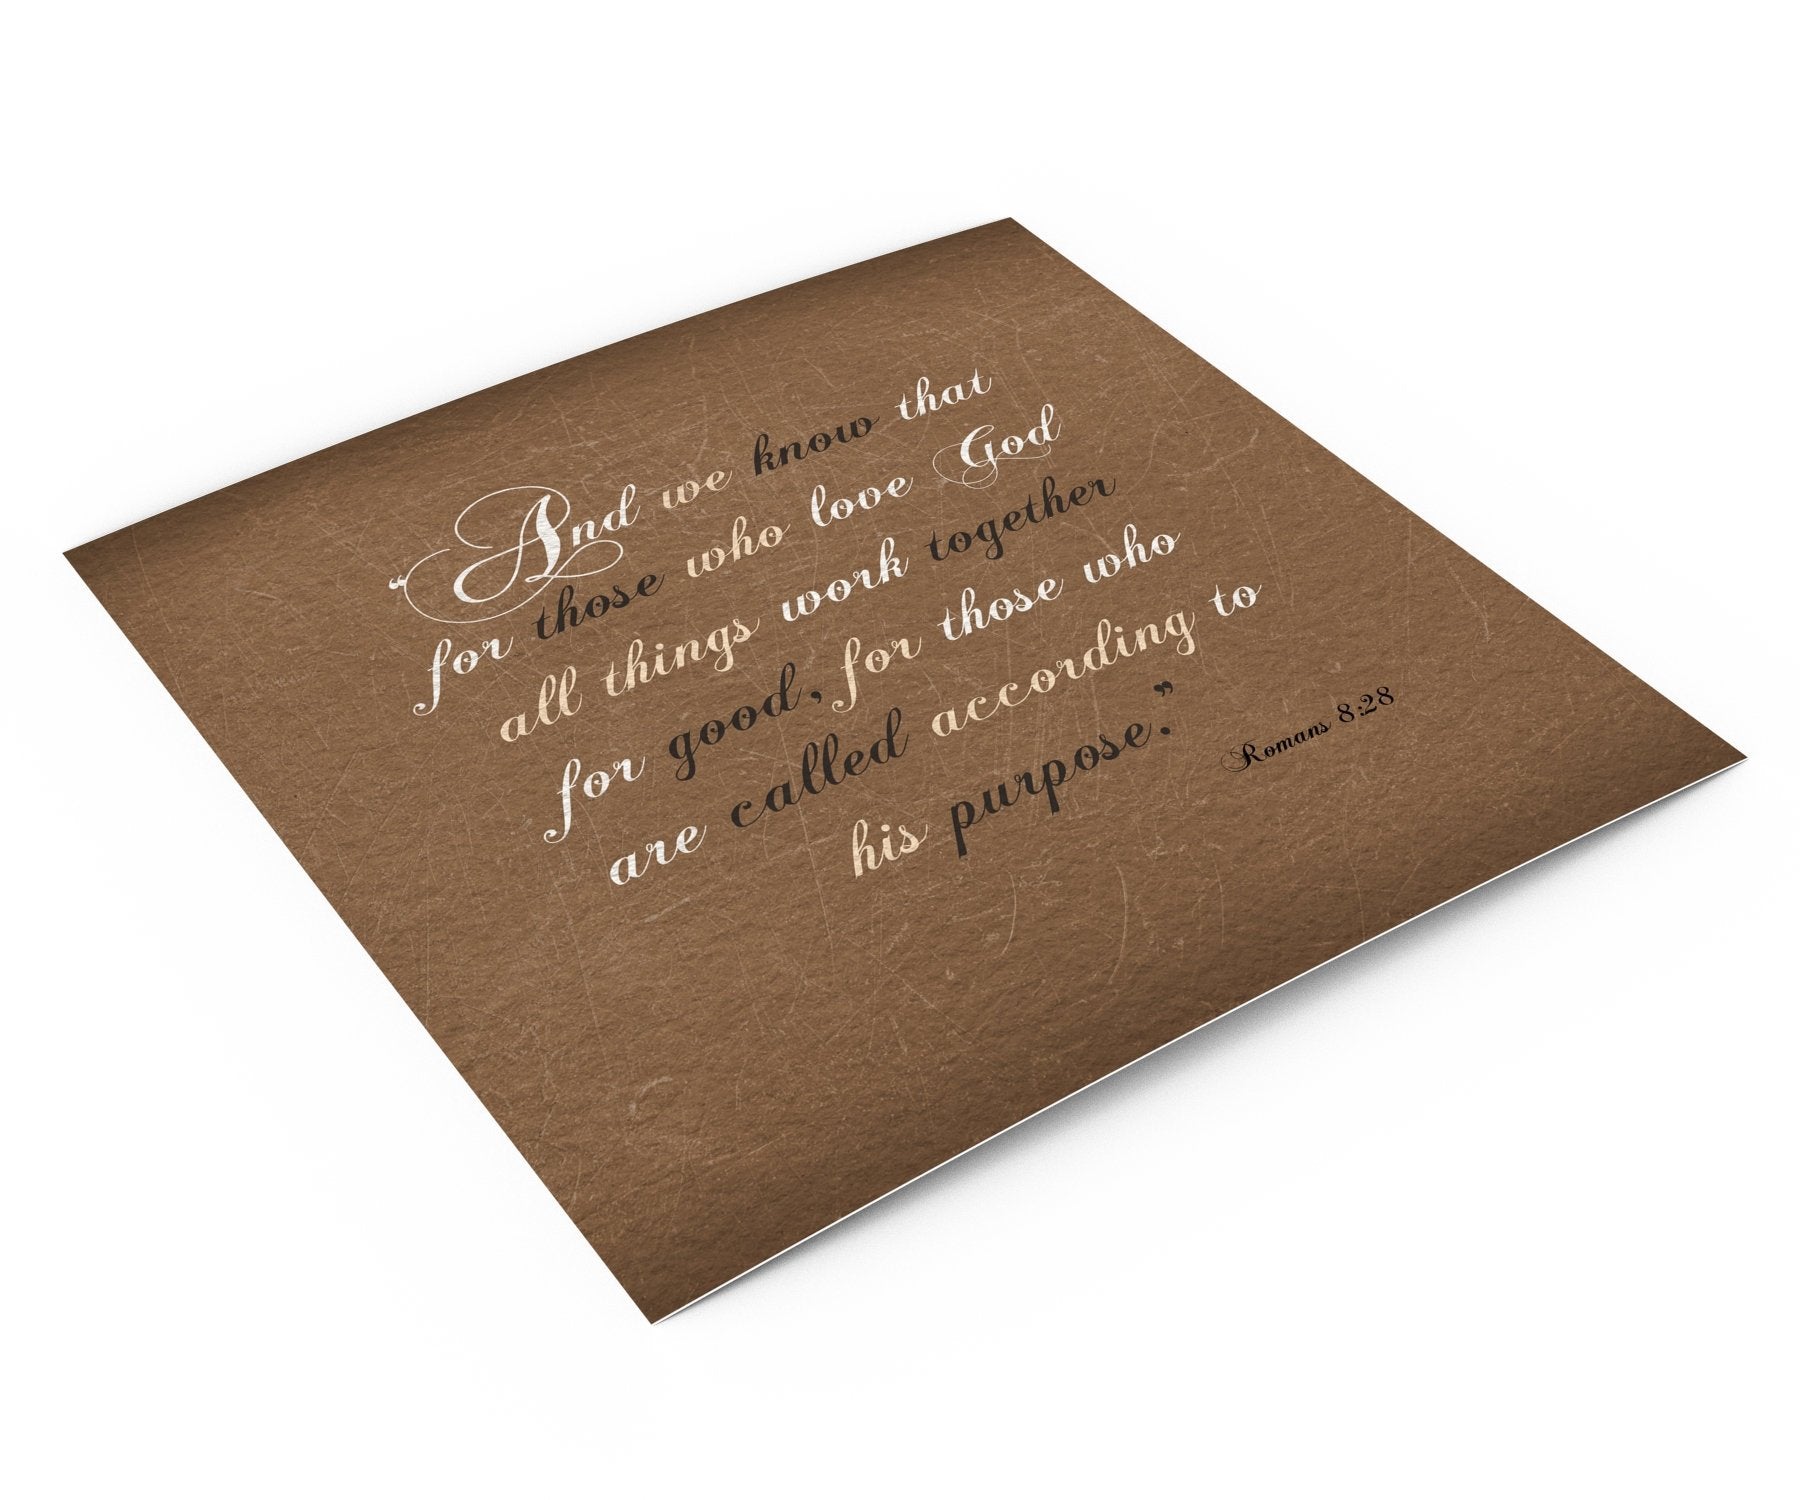 “And we know that
for those who love God
all things work together
for good, for those who
are called according to
his purpose.”
Romans 8:28